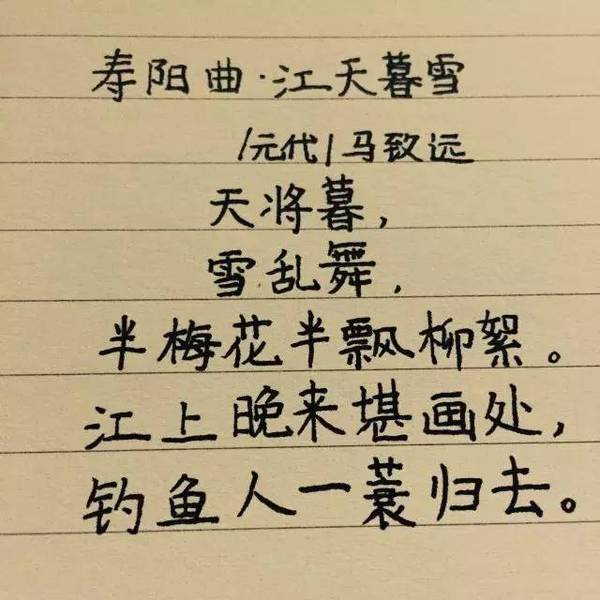 寿阳曲·江天暮雪
/元代/马致远
天将暮，
雪乱舞，
半梅花半飘柳絮。
江上晚来堪画处，
钓鱼人一蓑归去。